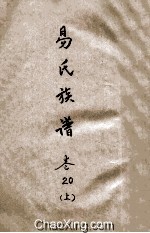 易氏族谱
卷20
(上)
ChaoXing.com